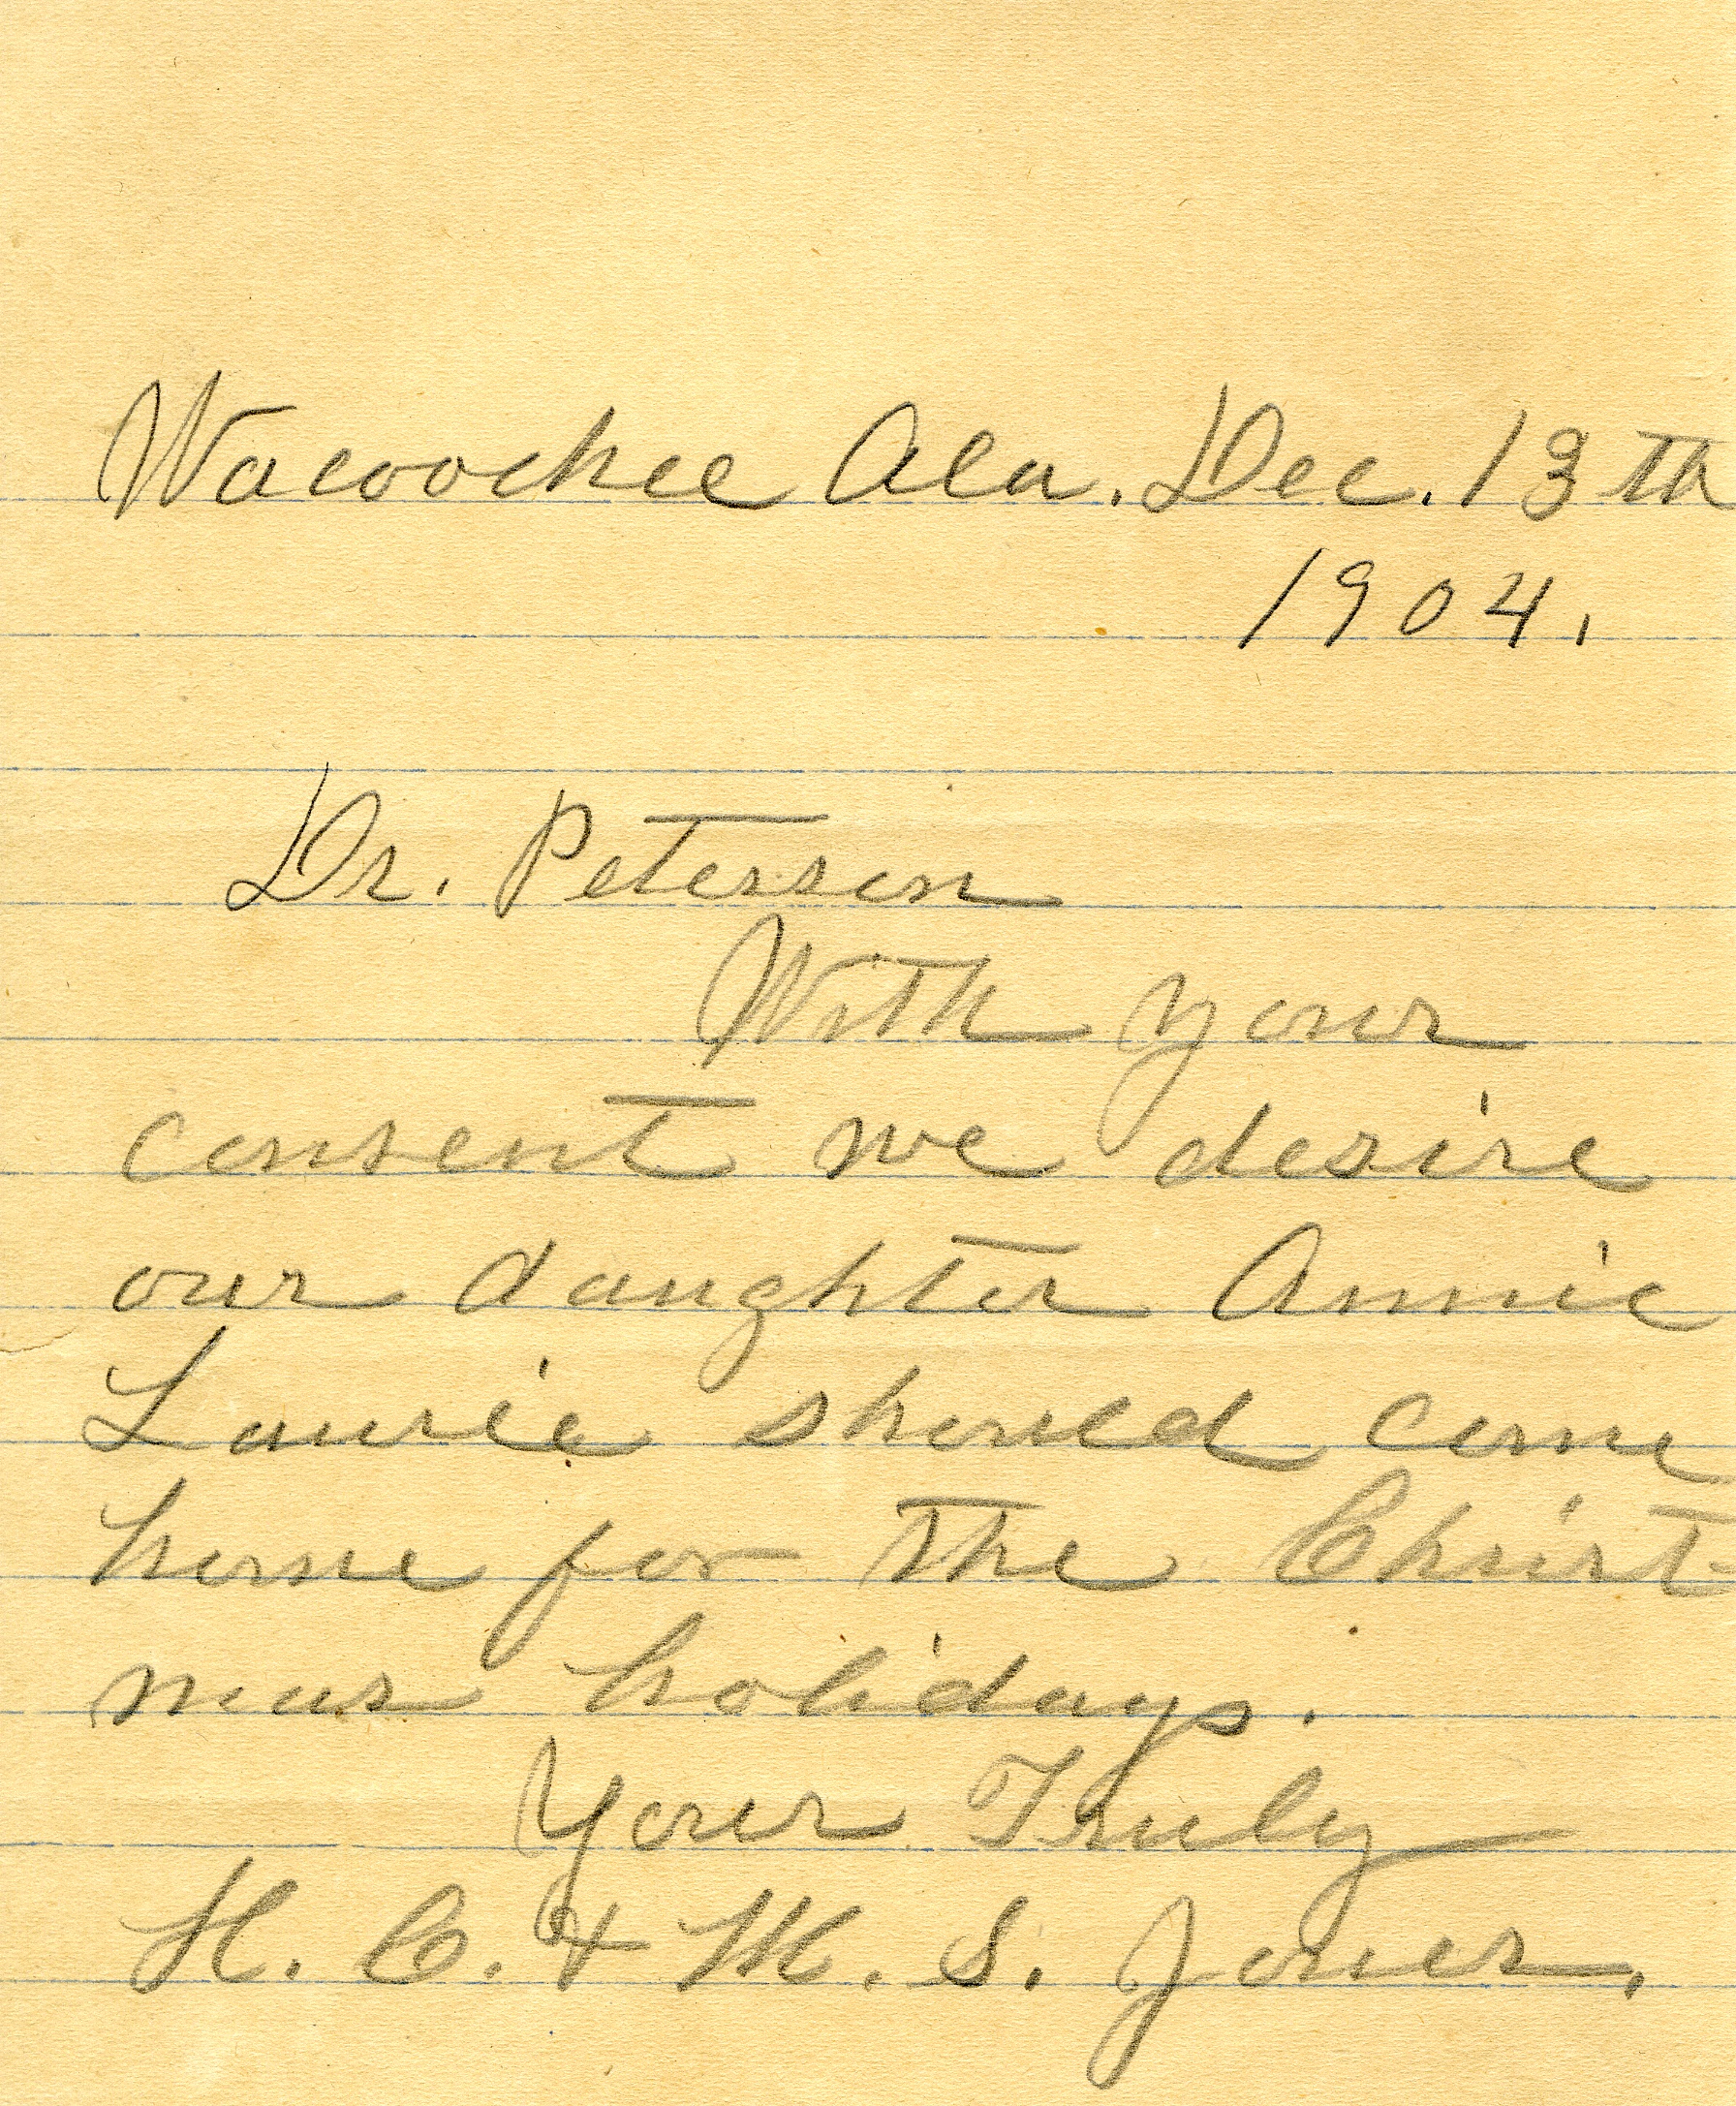 Wacoochee Ala. Dec. 13th
1904.
Dr. Peterson
With your
consent we desire
our daughter Annie
Laurie should come
home for the Christ
mas holidays.
Your Truly
H. C. & M. S. Jones.